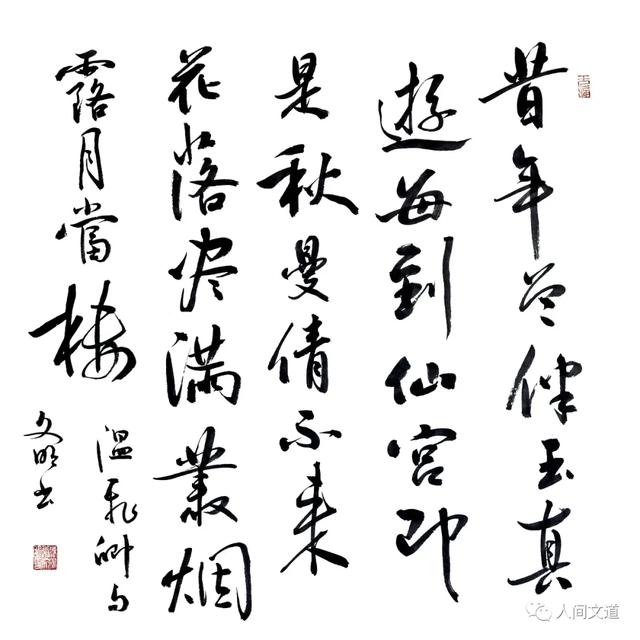 昔年曾伴玉真
遊每到仙宫即
是秋曼倩不来
花落尽满叢烟
露月當楼
温飛卿句
文明书
人间文道